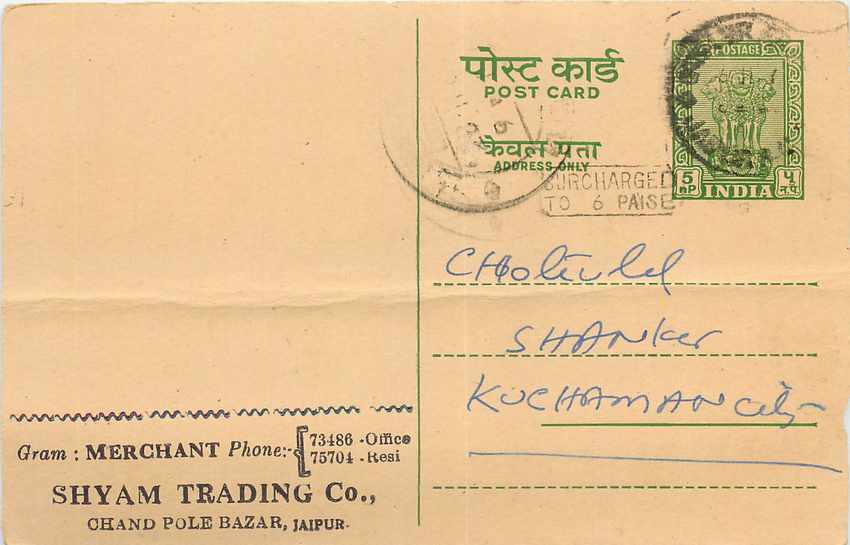 पोस्ट कार्ड
POST CARD
केवल पता
ADDRESS ONLY
POSTAGE
5 nP
INDIA
५ न.पै.
SURCHARGED
TO 6 PAISE
SHANKER
KUCHAMAN City
Gram : MERCHANT Phone:- { 73486 - Office
75704 - Resi
SHYAM TRADING Co.,
CHAND POLE BAZAR, JAIPUR.